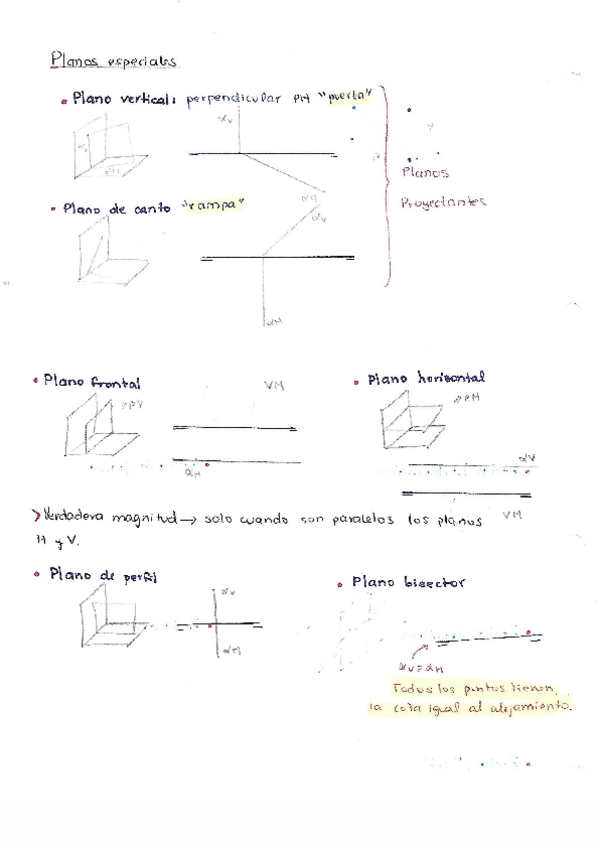 Planos especiales
• Plano vertical: perpendicular PH "puerta"
αv
αH
Planos
Proyectantes
• Plano de canto "rampa"
αv
αH
• Plano frontal
// PV
VM
αH
• Plano horizontal
// PH
αV
VM
> Verdadera magnitud → solo cuando son paralelos los planos
H y V.
• Plano de perfil
αv
αH
• Plano bisector
αv = αH
Todos los puntos tienen
la cota igual al alejamiento.